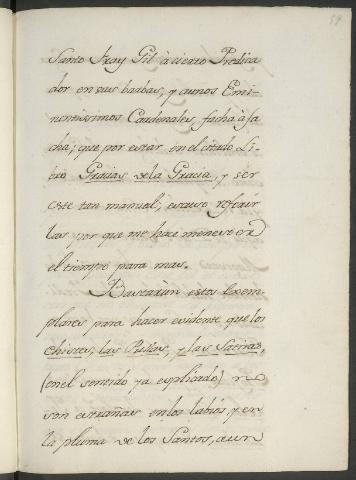 Santo Fray Gil à cierto Predica
dor en sus barbas, y a unos Emi-
nentissimos Cardenales, facha à fa
cha; que por estar en el citado Li-
bro Gracias de la Gracia, y ser
este tan manual; escuso referir
las y por que me hace menester
el tiempo para mas.
Bastaràn estos Exem-
plares para hacer evidente que los
Chistes, las Pullas, y las Satiras,
(en el sentido ya esplicado) no
son estrañas en los labios, y en
la pluma de los Santos, aun